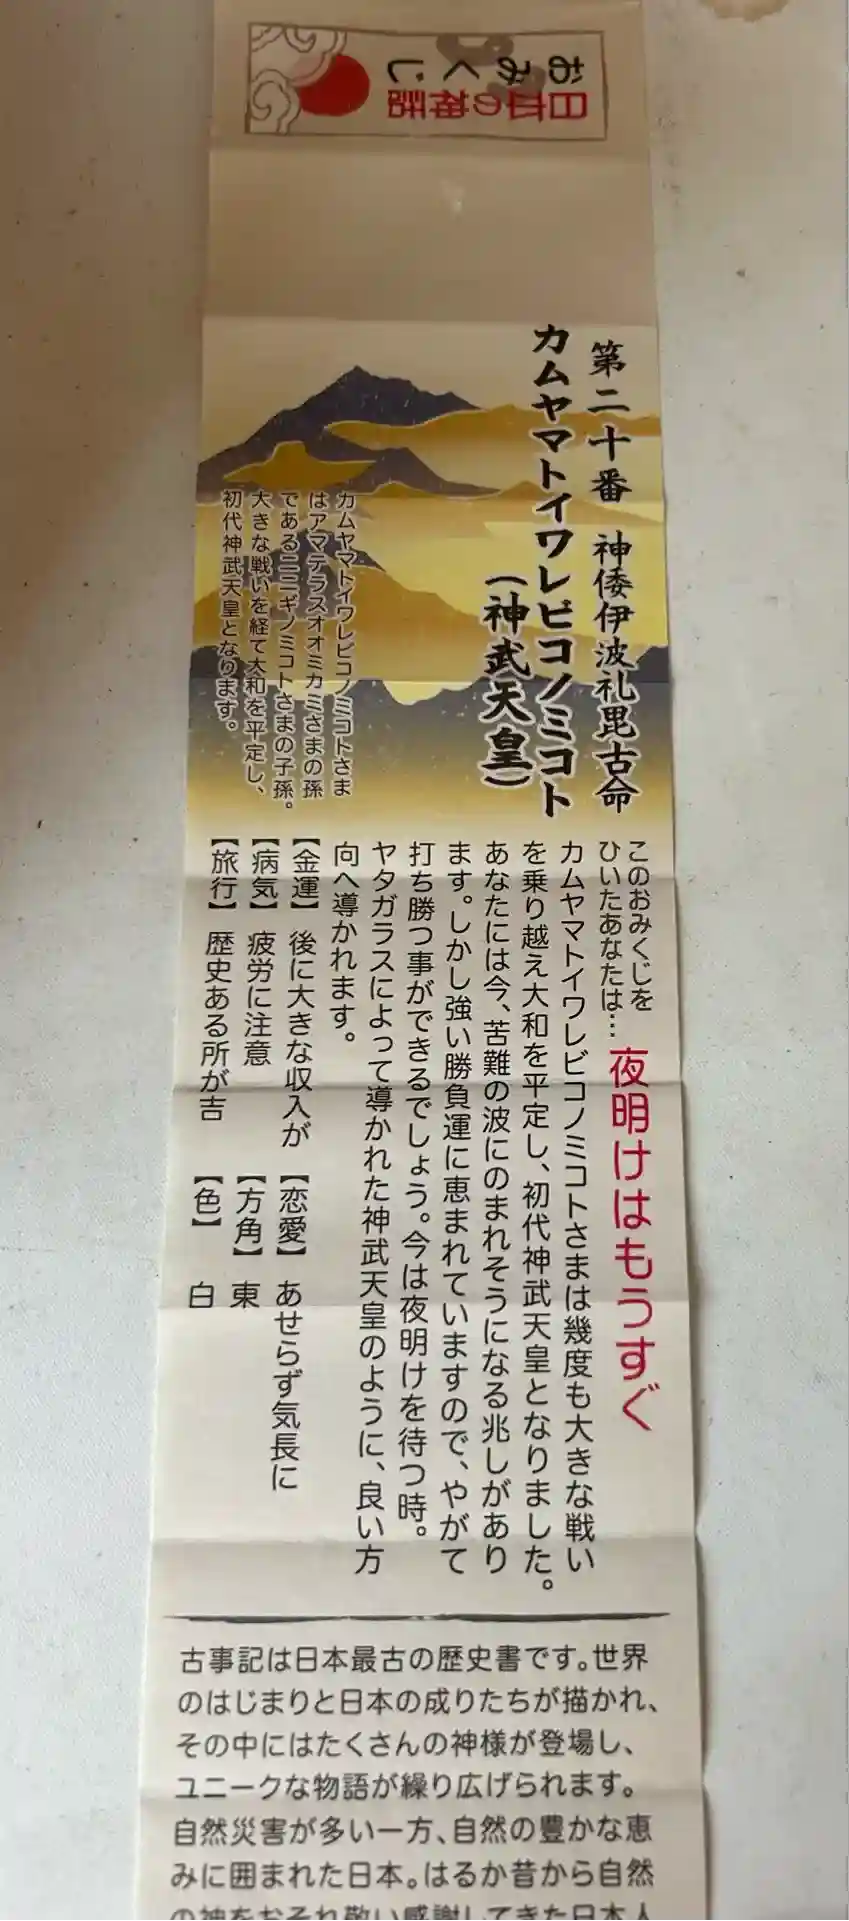 日本の神話
おみくじ
第二十番 神倭伊波礼毘古命
カムヤマトイワレビコノミコト
(神武天皇)
カムヤマトイワレビコノミコトさま
はアマテラスオオミカミさまの孫
であるニニギノミコトさまの子孫。
大きな戦いを経て大和を平定し、
初代神武天皇となります。
このおみくじを
ひいたあなたは…
夜明けはもうすぐ
カムヤマトイワレビコノミコトさまは幾度も大きな戦い
を乗り越え大和を平定し、初代神武天皇となりました。
あなたには今、苦難の波にのまれそうになる兆しがあり
ます。しかし強い勝負運に恵まれていますので、やがて
打ち勝つ事ができるでしょう。今は夜明けを待つ時。
ヤタガラスによって導かれた神武天皇のように、良い方
向へ導かれます。
【金運】 後に大きな収入が 【恋愛】 あせらず気長に
【病気】 疲労に注意 【方角】 東
【旅行】 歴史ある所が吉 【色】 白
古事記は日本最古の歴史書です。世界
のはじまりと日本の成りたちが描かれ、
その中にはたくさんの神様が登場し、
ユニークな物語が繰り広げられます。
自然災害が多い一方、自然の豊かな恵
みに囲まれた日本。はるか昔から自然
の神をおそれ敬い感謝してきた日本人